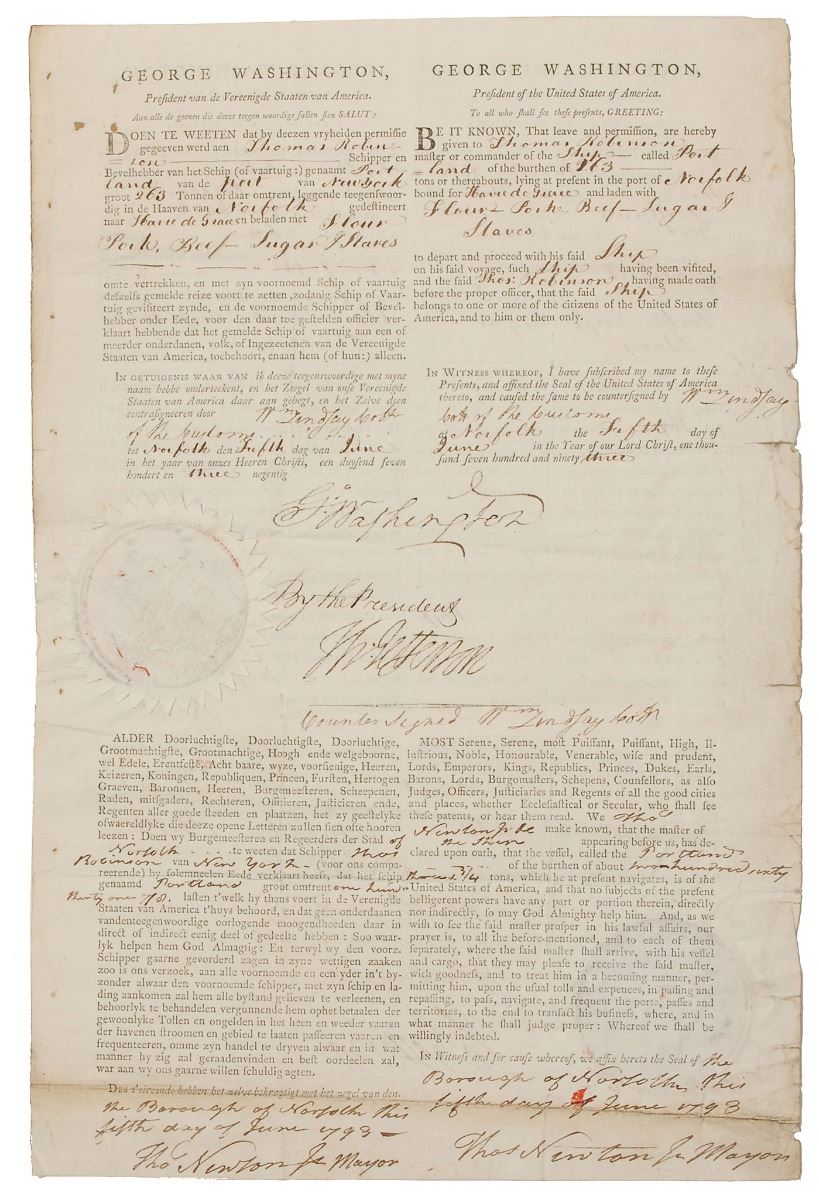 GEORGE WASHINGTON,
President van de Vereenigde Staaten van America.
Aan alle de geenen die deeze teegen woordige sullen sien SALUT:
DOEN TE WEETEN dat by deezen vryheiden permissie
gegeeven werd aen Thomas Robin-
son Schipper en
Bevelhebber van het Schip (of vaartuig:) genaamt Port
land van de port van New York
groot 263 Tonnen of daar omtrent, leggende teegenswoor-
dig in de Haaven van Norfolk gedestineert
naar Havre de Grace en beladen met Flour
Pork, Beef Sugar & Staves
omte vertrekken, en met zyn voornoemd Schip of vaartuig
deszelfs gemelde reize voort te zetten, zodanig Schip of Vaar-
tuig gevisiteert zynde, en de voornoemde Schipper of Bevel-
hebber onder Eede, voor den daar toe gestelden officier ver-
klaart hebbende dat het gemelde Schip of vaartuig aan een of
meerder onderdanen, volk, of Ingezeetenen van de Vereenigde
Staaten van America, toebehoort, enaan hem (of hun:) alleen.
IN GETUIGENIS WAAR VAN ik deeze teegenswoordige met myne
naam hebbe onderteekent, en het Zeegel van onse Vereenigde
Staaten van America daar aan gehegt, en het Zelve doen
contrasigneren door Wm Lindsay Collr
of the Customs
tot Norfolk den Fifth dag van June
in het yaar van onzes Heeren Christi, een duysend seven
hondert en three negentig
GEORGE WASHINGTON,
President of the United States of America.
To all who shall see these presents, GREETING:
BE IT KNOWN, That leave and permission, are hereby
given to Thomas Robinson
master or commander of the Ship called Port
land of the burthen of 263
tons or thereabouts, lying at present in the port of Norfolk
bound for Havre de Grace and laden with
Flour Pork Beef Sugar &
Staves
to depart and proceed with his said Ship
on his said voyage, such Ship having been visited,
and the said Thos. Robinson having made oath
before the proper officer, that the said Ship
belongs to one or more of the citizens of the United States of
America, and to him or them only.
IN WITNESS WHEREOF, I have subscribed my name to these
Presents, and affixed the Seal of the United States of America
thereto, and caused the same to be countersigned by Wm Lindsay
Collr of the Customs
at Norfolk the Fifth day of
June in the Year of our Lord Christ, one thou-
sand seven hundred and ninety three
Go Washington
By the President
Th: Jefferson
Counter signed Wm Lindsay Collr
ALDER Doorluchtigste, Doorluchtigste, Doorluchtige,
Grootmachtigste, Grootmachtige, Hoogh ende welgeboorne,
wel Edele, Erentfeste, Acht baare, wyze, voorsienige, Heeren,
Keizeren, Koningen, Republiquen, Princen, Fursten, Hertogen
Graeven, Baronnen, Heeren, Burgemeesteren, Scheepenen,
Raden, mitsgaders, Rechteren, Officieren, Justicieren ende,
Regenten aller goede steeden en plaatzen, het zy geestelyke
ofwaereldlyke die deeze opene Letteren zullen sien ofte hooren
leezen: Doen wy Burgemeesteren en Regeerders der Stad of
Norfolk te weeten dat Schipper Thos
Robinson van New York (voor ons compa-
reerende) by solemneelen Eede verklaart heeft, dat het schip
genaamd Portland groot omtrent one hun
thirty one 7/8 lasten t'welk hy thans voert in de Verenigde
Staaten van America t'huys behoord, en dat geen onderdaanen
vandenteegenwoordige oorlogende moogendheeden daar in
direct of indirect eenig deel of gedeelte hebben: Soo waar-
lyk helpen hem God Almagtig: En terwyl wy den voorz.
Schipper gaarne gevorderd zagen in zyne wettigen zaaken
zoo is ons verzoek, aan alle voornoemde en een yder in't by-
zonder alwaar den voornoemde schipper, met zyn schip en la-
ding aankomen zal hem alle bystand gelieven te verleenen, en
behoorlyk te behandelen vergunnende hem ophet betaalen der
gewoonlyke Tollen en ongelden in het heen en weeder vaaren
der havenen stroomen en gebied te laaten passeeren vaaren en
frequenteeren, omme zyn handel te dryven alwaar en in wat
manner hy zig zal geraadenvinden en best oordeelen zal,
war aan wy ons gaarne willen schuldig agten.
Des t'oirconde hebben het zelve bekragtigd met het zegel van den.
the Borough of Norfolk this
fifth day of June 1793
Tho Newton Jr Mayor
MOST Serene, Serene, most Puissant, Puissant, High, Il-
lustrious, Noble, Honourable, Venerable, wise and prudent,
Lords, Emperors, Kings, Republics, Princes, Dukes, Earls,
Barons, Lords, Burgomasters, Schepens, Counsellors, as also
Judges, Officers, Justiciaries and Regents of all the good cities
and places, whether Ecclesiastical or Secular, who shall see
these patents, or hear them read. We Thos
Newton Jr make known, that the master of
the Ship appearing before us, has de-
clared upon oath, that the vessel, called the Portland
of the burthen of about two hundred sixty
three 3/4 tons, which he at present navigates, is of the
United States of America, and that no subjects of the present
belligerent powers have any part or portion therein, directly
nor indirectly, so may God Almighty help him. And, as we
wish to see the said master prosper in his lawful affairs, our
prayer is, to all the before-mentioned, and to each of them
separately, where the said master shall arrive, with his vessel
and cargo, that they may please to receive the said master,
with goodness, and to treat him in a becoming manner, per-
mitting him, upon the usual tolls and expences, in passing and
repassing, to pass, navigate, and frequent the ports, passes and
territories, to the end to transact his business, where, and in
what manner he shall judge proper: Whereof we shall be
willingly indebted.
In Witness and for cause whereof, we affix hereto the Seal of the
Borough of Norfolk, this
fifth day of June 1793
Thos Newton Jr Mayor